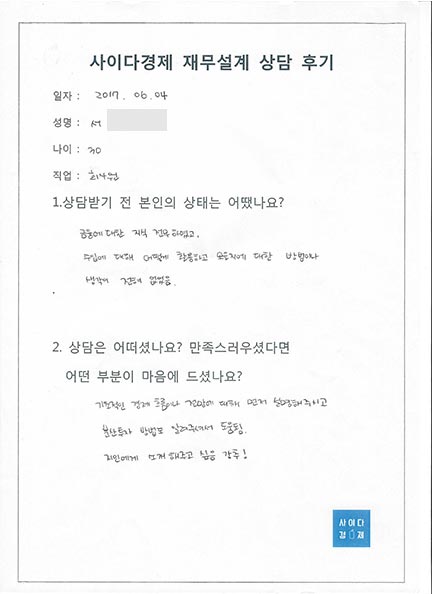 사이다경제 재무설계 상담 후기
일자 : 2017. 06. 04
성명 : 서
나이 : 30
직업 : 회사원
1.상담받기 전 본인의 상태는 어땠나요?
금융에 대한 지식 전무하였고,
수입에 대해 어떻게 활용하고 모을지에 대한 방법이나
생각이 전혀 없었음.
2. 상담은 어떠셨나요? 만족스러우셨다면
어떤 부분이 마음에 드셨나요?
기본적인 경제 흐름이나 전망에 대해 먼저 설명해주시고
분산투자 방법도 알려주셔서 도움됨.
지인에게 소개 해주고 싶을 강추!
사이다
경제